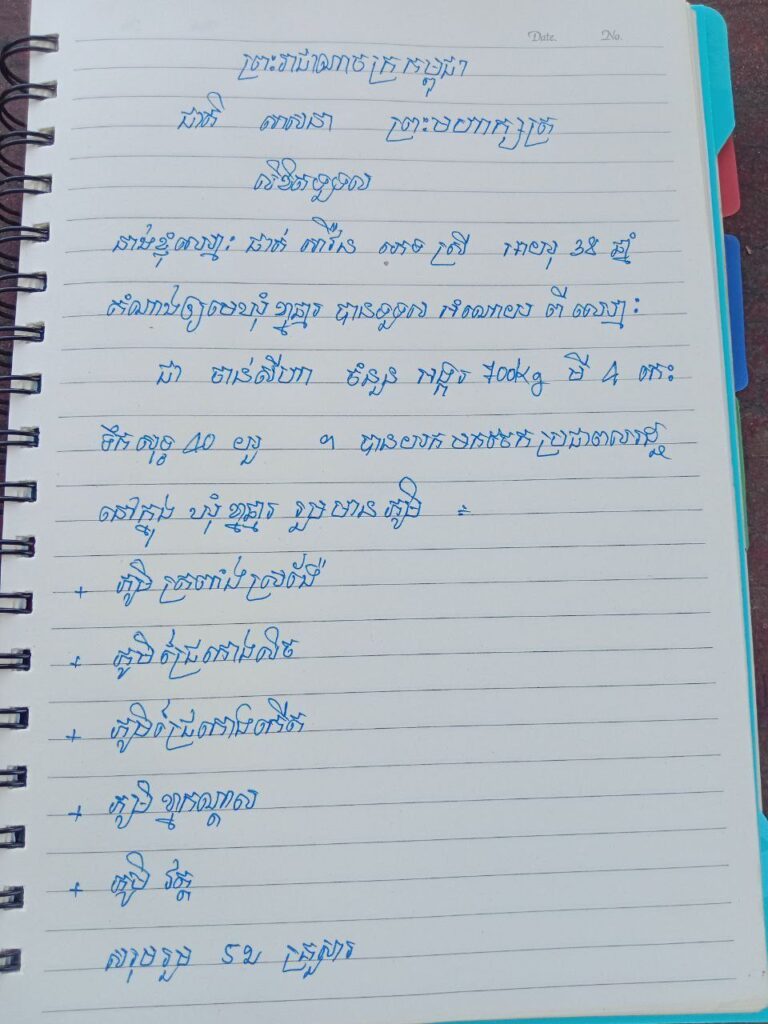 Date. No.
ព្រះរាជាណាចក្រកម្ពុជា
ជាតិ សាសនា ព្រះមហាក្សត្រ
លិខិតទទួល
នាងខ្ញុំឈ្មោះ ជាត់ សាវ៉ន ភេទ ស្រី អាយុ 38 ឆ្នាំ
តំណាងឲ្យមេឃុំខ្នាឆ្មារ បានទទួល អំណោយ ពី ឈ្មោះ
ជា ចាន់សីហា ចំនួន អង្ករ 700kg មី 4 កេះ
ទឹកសុទ្ធ 40 យួ ៗ បានយក មកចែក ប្រជាពលរដ្ឋ
នៅក្នុង ឃុំ ខ្នាឆ្មារ រួមមានភូមិ ៖
+ ភូមិ ត្រពាំងស្រងែ
+ ភូមិជ្រៃកោងលិច
+ ភូមិជ្រៃកោងកើត
+ ភូមិ ខ្នាកណ្តាល
+ ភូមិ វត្ត
សរុបរួម 52 គ្រួសារ